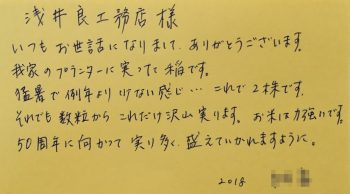 浅井良工務店 様
いつもお世話になりまして、ありがとうございます。
我家のプランターに実った稲です。
猛暑で例年より少ない感じ… これで2株です。
それでも数粒から これだけ沢山実ります。 お米は力強いです。
50周年に向かって 実り多く、盛えていかれますように。
2018